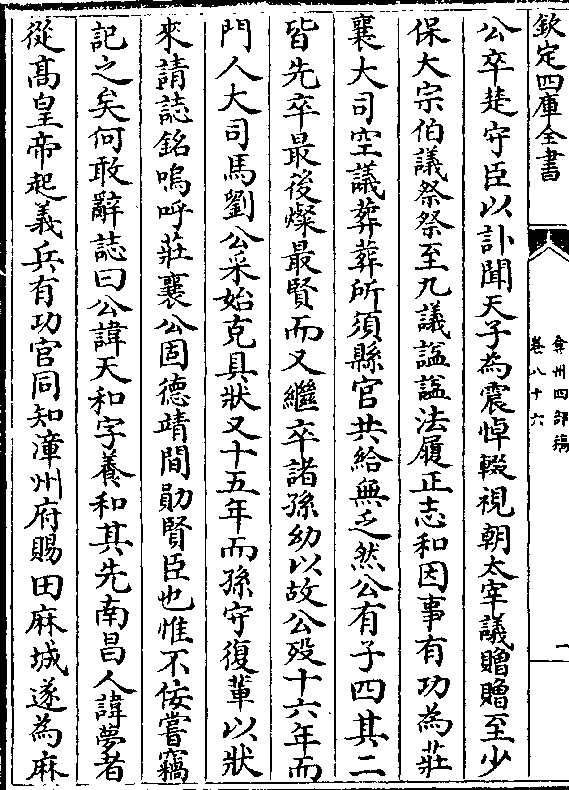 欽定四庫全書
弇州四部稿
卷八十六
一
公卒楚守臣以訃聞天子為震悼輟視朝太宰議贈贈至少
保大宗伯議祭祭至九議諡諡法履正志和因事有功為莊
襄大司空議葬葬所須縣官共給無乏然公有子四其二
皆先卒最後燦最賢而又繼卒諸孫幼以故公歿十六年而
門人大司馬劉公采始克具狀又十五年而孫守復輩以狀
來請誌銘嗚呼莊襄公固德靖間勛賢臣也惟不佞嘗竊
記之矣何敢辭誌曰公諱天和字養和其先南昌人諱夢者
從髙皇帝起義兵有功官同知漳州府賜田麻城遂為麻